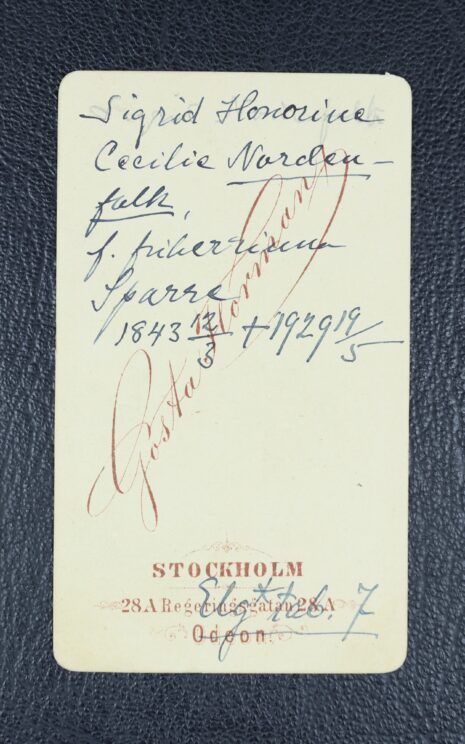 Sigrid Honorine
Cecilie Norden-
falk,
f. friherrinna
Sparre
1843 12/3 + 1929 19/5
Gösta Florman
STOCKHOLM
28A Regeringsgatan 28A
tab. 7
Odeon